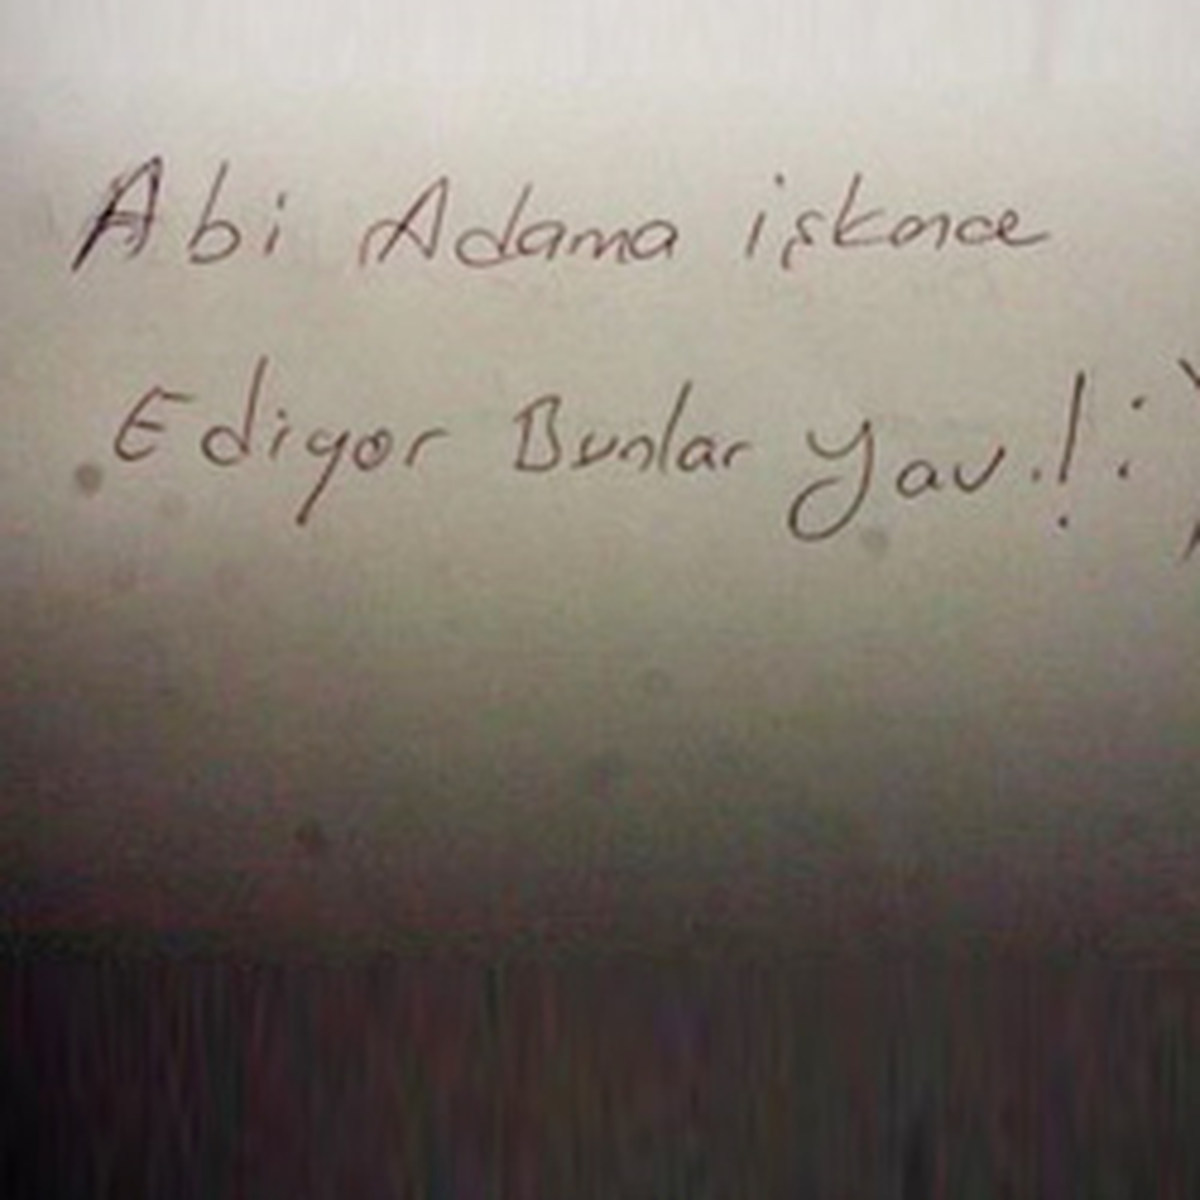 Abi Adama işkence
Ediyor Bunlar Yav.! :)